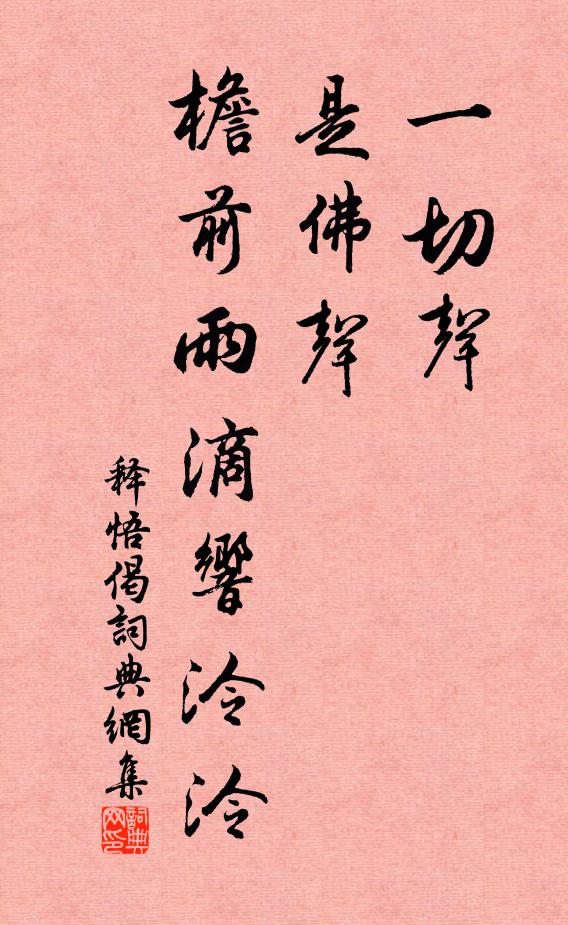 一切聲
是佛聲
檐前雨滴響泠泠
释悟偈詞典網集
詞典
网印